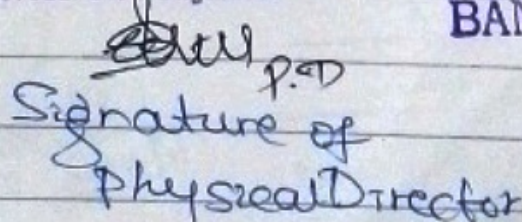 BAN
P.D
Signature of
PhysicalDirector